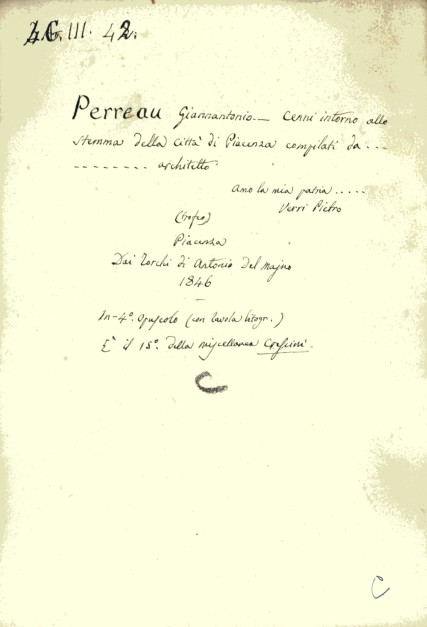 III. 42.
Perreau Giannantonio — Cenni intorno allo
stemma della città di Piacenza compilati da ...
- - - - - - - - architetto
Amo la mia patria .....
Verri Pietro
(trofeo)
Piacenza
Dai Torchi di Antonio Del Majno
1846
In-4°. Opuscolo (con tavola litogr.)
È il 15°. della miscellanea Crescini.
C
C